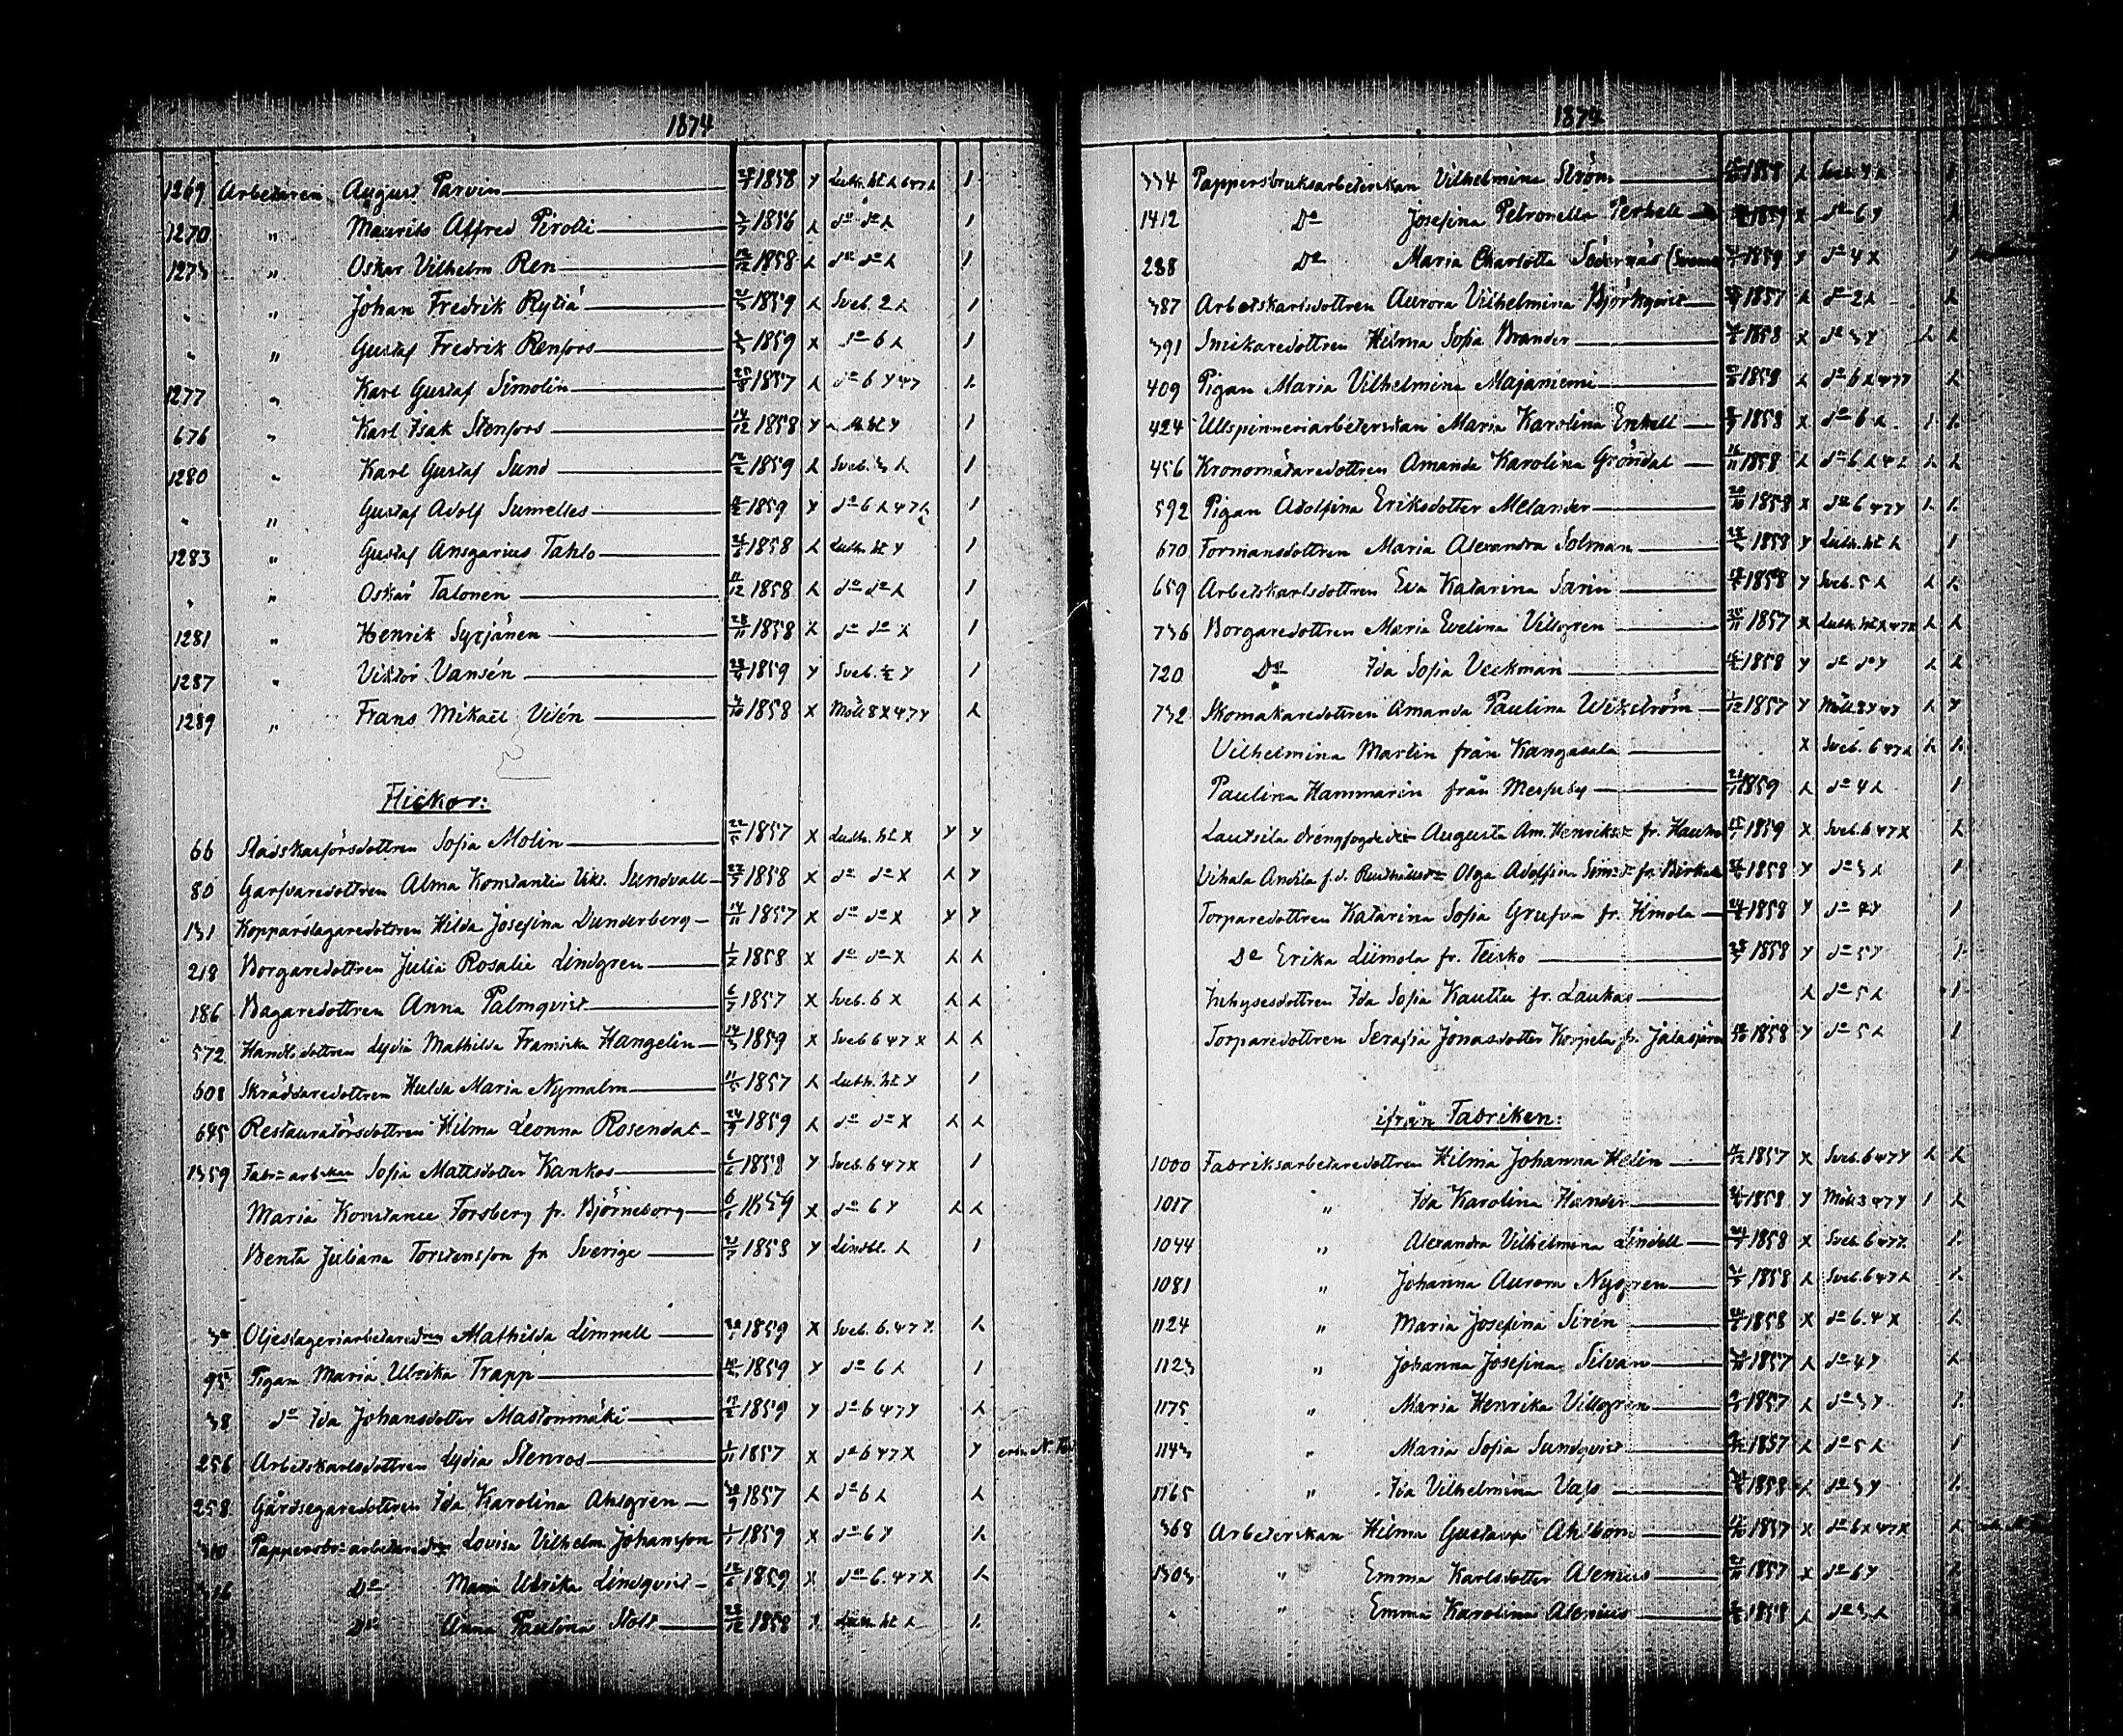 1874
1269 Arbetaren August Parvin 1858 Y Luth. ht λ 6 47 λ 1
1270 " Maurits Alfred Pirolti 1856 λ do do λ 1
1273 " Oskar Vilhelm Ren 1858 λ do do λ 1
" " Johan Fredrik Rytiä 1859 λ Sveb. 2 λ 1
" " Gustaf Fredrik Renfors 1859 X do 6 λ 1
1277 " Karl Gustaf Simolin 1857 λ do 6 Y 47 1.
676 " Karl Isak Stenfors 14/12 1858 Y ht Y 1
1280 " Karl Gustaf Sund 1859 λ Sveb. 3 λ 1
" " Gustaf Adolf Sumelles 1859 Y do 6 λ 47 λ 1
1283 " Gustaf Ansgarius Tahlo 1858 λ Luth. ht Y 1
" " Oskar Talonen 11/12 1858 λ do do λ 1
1281 " Henrik Syrjänen 28/11 1858 X do do X 1
1287 " Viktor Vansén 1859 Y Sveb. Y 1
1289 " Frans Mikael Vidén 1858 X Möll 8 X 47 Y λ
Flickor:
66 Stadskasförsdottren Sofia Molin 22/5 1857 X Luth. ht X Y Y
80 Garfvaredottren Alma Konstantia Vikt. Sundvall 1858 X do do X λ Y
131 Kopparslagaredottren Hilda Josefina Dunderberg 14/11 1857 X do do X Y Y
218 Borgaredottren Julia Rosalie Lindgren 1858 X do do X λ λ
186 Bagaredottren Anna Palmqvist 6/7 1857 X Sveb. 6 X λ λ
572 Handl. dottren Lydia Mathilda Franciska Hangelin 1859 X Sveb 6 47 X λ λ
608 Skräddaredottren Hulda Maria Nymalm 11/5 1857 λ Luth. ht Y 1
645 Restauratörsdottren Hilma Leonna Rosendal 1859 λ do do X λ λ
1359 Fabr:arb:skan Sofia Mattsdotter Kankos 1858 Y Sveb. 6 47 X 1
Maria Konstance Forsberg fr. Björneborg 1859 X do 6 Y λ λ
Benta Juliana Torstensson fr Sverige 1858 Y Lindbl. λ 1
Oljeslageriarbetaredren Mathilda Limnell 1859 X Sveb. 6. 47 X. λ
95 Pigan Maria Ulrika Trapp 1859 Y do 6 λ 1
38 do Ida Johansdotter Mastonmäki 1859 Y do 6 47 Y λ
256 Arbetskarlsdottren Lydia Stenros 1/11 1857 X do 6 47 X Y
258 Gårdsegaredottren Ida Karolina Ahlgren 1857 λ do 6 λ λ
310 Pappersbr:arbetaredren Lovisa Vilhelm. Johansson 1859 X do 6 Y λ
316 Do Maria Ulrika Lindqvist 1859 X do 6. 47 X λ
Do Anna Paulina Stolt 28/12 1858 Luth. ht λ 1.
1874
334 Pappersbruksarbeterskan Vilhelmina Ström 1858 λ Sveb. 4 λ 1
1412 Do Josefina Petronella Perhell 1859 X do 6 Y λ
288 Do Maria Charlotta Södernäs 1859 Y do 4 X 1
387 Arbetskarlsdottren Aurora Vilhelmina Björkqvist 1857 λ do 2 λ λ
391 Snickaredottren Hilma Sofia Brander 1858 X do 3 Y λ λ
409 Pigan Maria Vilhelmina Majaniemi 1858 λ do 6 X 47 Y λ
424 Ullspinneriarbeterskan Maria Karolina Enkell 1858 X do 6 λ 1 1.
456 Kronomätaredottren Amanda Karolina Gröndal 1858 λ do 6 λ 4 λ λ λ
592 Pigan Adolfina Eriksdotter Melander 20/10 1858 X do 6 47 Y λ 1.
670 Formansdottren Maria Alexandra Solman 1858 Y Luth. ht λ 1
659 Arbetskarlsdottren Eva Katarina Sarin 1858 Y Sveb. 5 λ λ λ
736 Borgaredottren Maria Evelina Villgren 1857 X Luth. ht λ 47 X λ λ
720 Do Ida Sofia Veckman 1858 Y do do Y λ λ
732 Skomakaredottren Amanda Paulina Wikström 1/12 1857 Y Möll 8 Y 47 λ Y
Vilhelmina Martin från Kangasala X Sveb. 6 47 λ λ 1.
Paulina Hammarin från Messuby 1859 λ do 4 λ 1
Lautsila drängfogdedtr Augusta Am. Henriksdr fr. Hauho 1859 X Sveb. 6 47 X λ
Vihala Andila f.d. Rusthållsdtr Olga Adolfina Simsdr fr. Birkala 1858 Y do 3 λ 1
Torparedottren Katarina Sofia Grufva fr. Kimola 1858 Y do 4 Y 1
Do Erika Liimola fr. Teisko 1858 Y do 5 Y 1.
Inhysesdottren Ida Sofia Kauttu fr. Laukas λ do 5 λ 1
Torparedottren Serafia Jonasdotter Korpela fr. Jalasjärvi 1858 Y do 5 λ 1
ifrån Fabriken:
1000 Fabriksarbetaredottren Hilma Johanna Helin 1857 X Sveb. 6 47 Y λ λ
1017 " Ida Karolina Hander 1858 Y Möll 3 47 Y 1 λ
1044 " Alexandra Vilhelmina Lindell 1858 X Sveb. 6 47 X 1.
1081 " Johanna Aurora Nygren 1858 λ Sveb. 6 47 λ λ
1124 " Maria Josefina Sirén 1858 X do 6. 4 X λ
1123 " Johanna Josefina Silvan 1857 λ do 4 Y λ
1175 " Maria Henrika Villgren 1857 λ do 3 Y 1.
1143 " Maria Sofia Sundqvist 1857 λ do 5 λ 1
1165 " Ida Vilhelmina Vass 1858 λ do 3 Y 1.
368 Arbeterskan Hilma Gustava Ahlbom 1857 X do 6 X 47 X λ
1303 " Emma Karlsdotter Alenius 1857 X do 6 Y
" " Emma Karolina Alenius 1858 λ do 3 λ